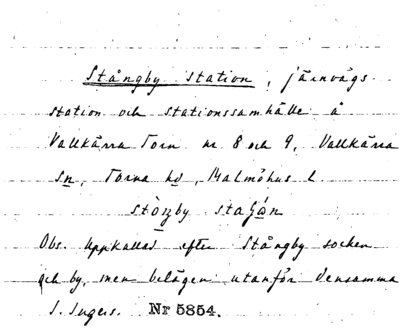 Stångby station, järnvägs
station och stationssamhälle å
Vallkärra Torn nr 8 och 9, Vallkärra
sn, Torna hd, Malmöhus l
stòŋby staʃán
Obs. uppkallad efter Stångby socken
och by, men belägen utanför densamma
I. Ingers. Nr 5854.